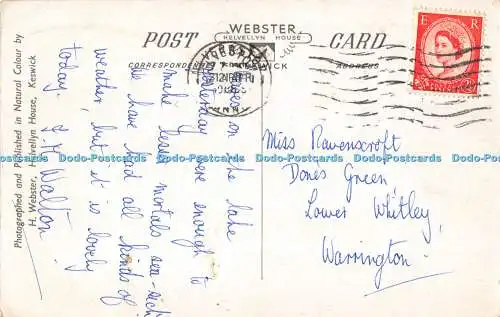 WEBSTER
HELVELLYN HOUSE
KESWICK
POST CARD
CORRESPONDENCE
ADDRESS
E R
Photographed and Published in Natural Colour by
H. Webster, Helvellyn House, Keswick
on the lake
yesterday were enough to
make lesser mortals sea-sick
We have had all kinds of
weather but it is lovely
today. Walton
Miss Ravenscroft
Dones Green
Lower Whitley,
Warrington.
Dodo-Postcards Dodo-Postcards Dodo-Postcards Dodo-Postcards Dodo-Postcards Dodo-Postcards